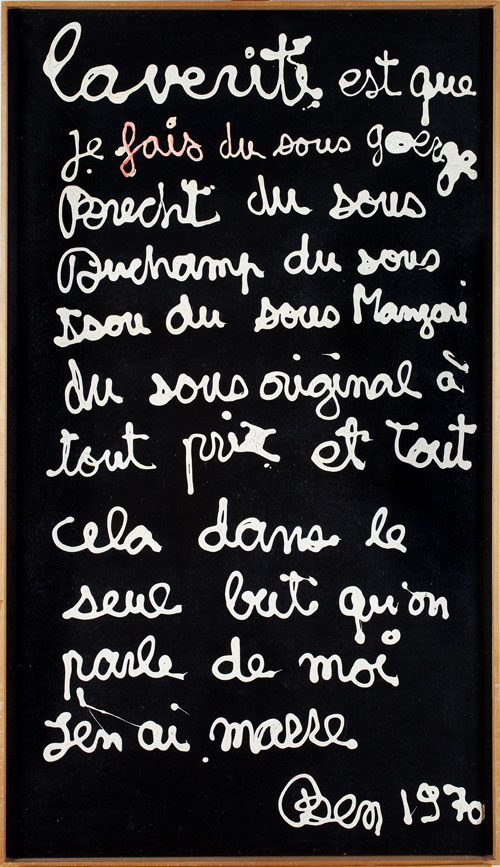 la verité est que
je fais du sous george
Brecht du sous
Duchamp du sous
Isou du sous Manzoni
du sous original à
tout prix et tout
cela dans le
seul but qu'on
parle de moi
j'en ai marre
Ben 1970